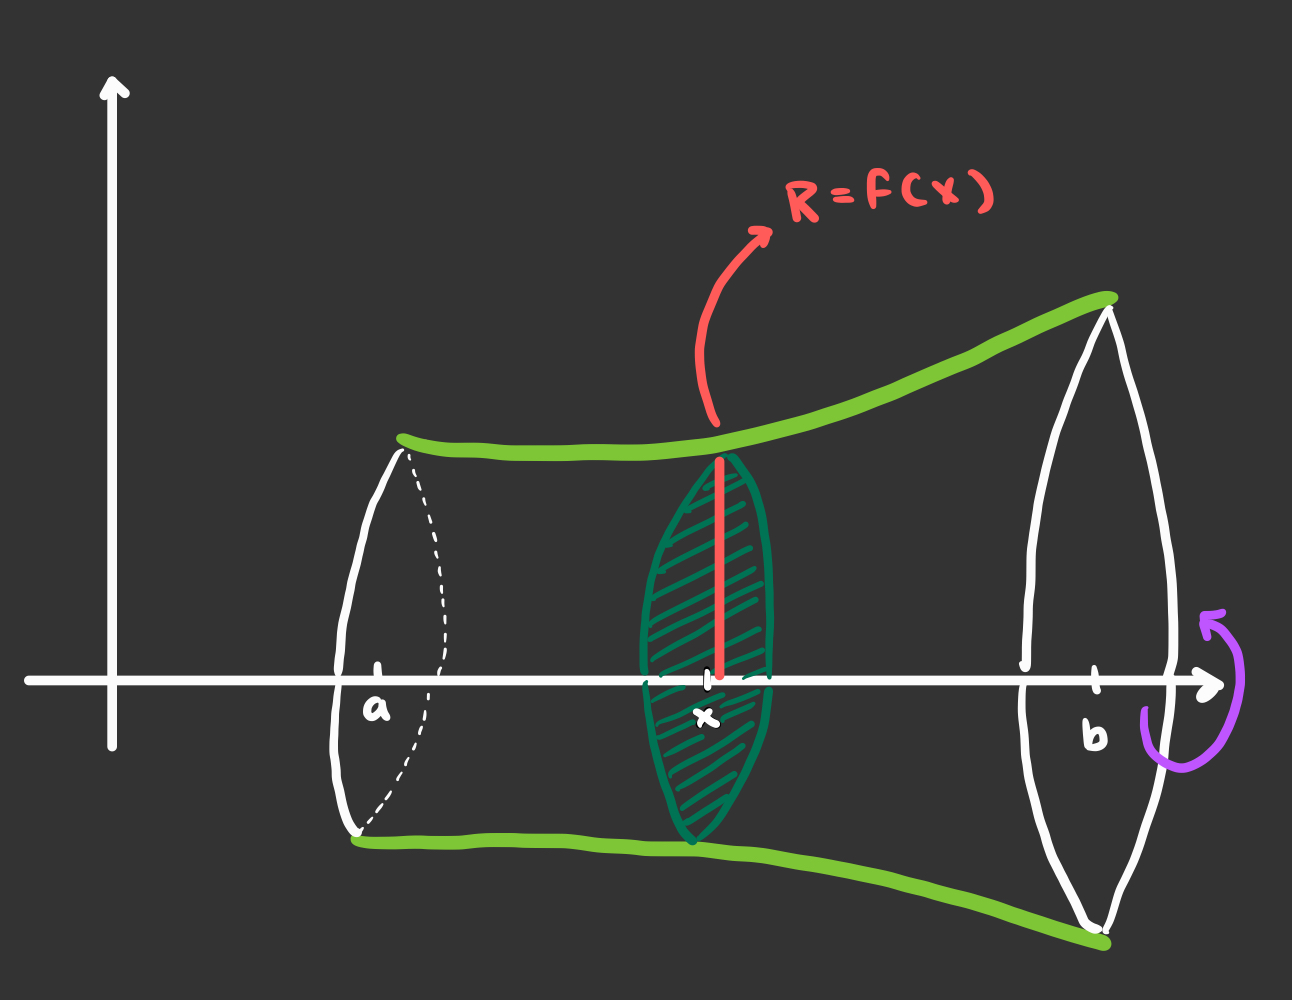 R = f(x)
a
x
b